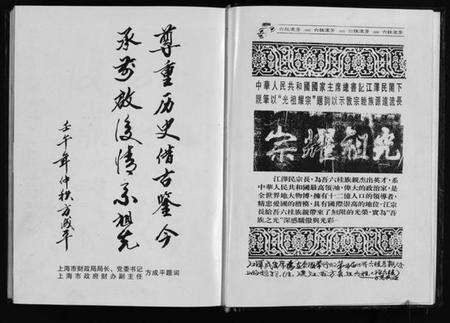 尊重历史借古鉴今
承前啟後情系祖先
壬午年仲秋方成平
上海市财政局局长、党委书记
上海市政府财办副主任 方成平题词
六桂流芳 六桂流芳 六桂流芳 六桂流芳
中華人民共和國國家主席總書記江澤民閣下
親筆以“光祖耀宗”題詞以示敦宗睦族源遠流長
宗耀祖光
江澤民宗長，為吾六桂族親杰出英才，系
中華人民共和國最高領袖，偉大的政治家，是
全世界地大物博，擁有十二億人口的領導者，
精忠愛國的楷模，具有國際崇高的地位，江宗
長給吾六桂族親帶來了無限的光榮，實為“吾
族之光”深感驕傲與光彩。